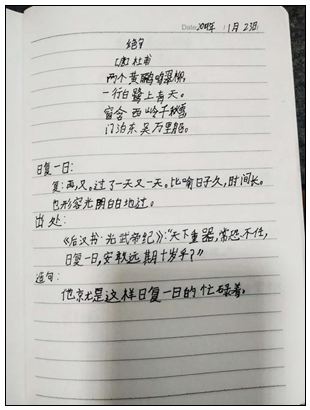 Date 2021年 1月23日
绝句
[唐]杜甫
两个黄鹂鸣翠柳,
一行白鹭上青天。
窗含西岭千秋雪
门泊东吴万里船。
日复一日:
复:再,又。过了一天又一天。比喻日子久,时间长。
也形容光阴白白地过。
出处:
《后汉书·光武帝纪》:“天下重器,常恐不任,
日复一日,安敢远期十岁乎?”
造句:
他就是这样日复一日的忙碌着,